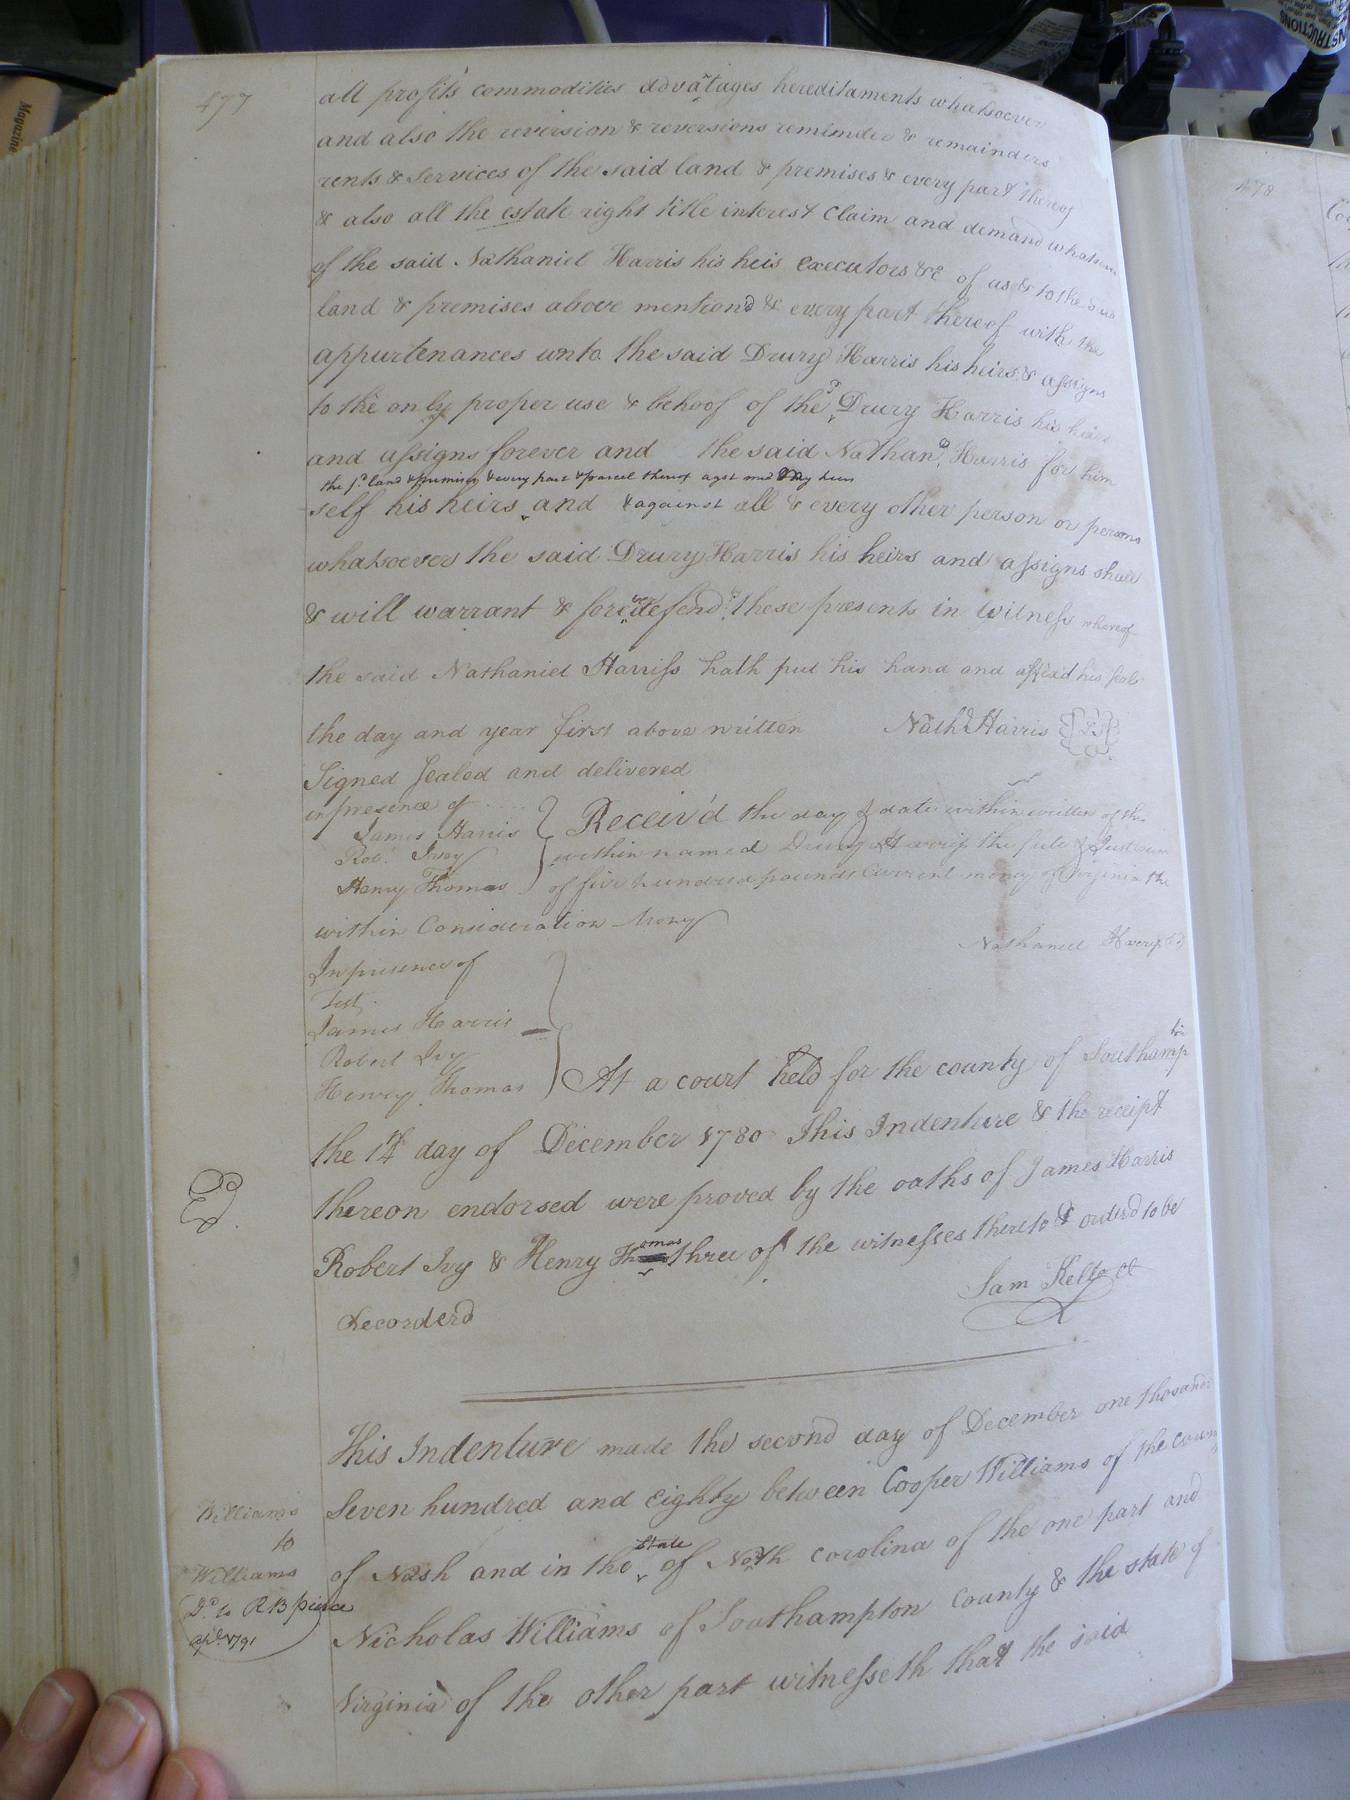 477
all profits commodities advatages hereditaments whatsoever
and also the reversion & reversions reminder & remainders
rents & services of the said land & premises & every part thereof
& also all the estate right title interest Claim and demand whatsoever
of the said Nathaniel Harris his heis executors &c of as & to the said
land & premises above mentiond & every part thereof with the
appurtenances unto the said Drury Harris his heirs & assigns
to the only proper use & behoof of the sd Drury Harris his heirs
and assigns forever and the said Nathanl Harris for him
the sd land & premises & every part & parcel thereof agst me & my heirs
self his heirs and & against all & every other person or persons
whatsoever the said Drury Harris his heirs and assigns shall
& will warrant & forever defend these presents in Witness whereof
the said Nathaniel Harriss hath put his hand and affixd his seal
the day and year first above written Nathl Harris LS
Signed Sealed and delivered
in presence of
James Harris
Robt Ivey
Henry Thomas
Receiv'd the day & date within written of the
within named Drury Harris the full & Just sum
of five hundred pounds Current money of Virginia the
within Consideration Mony
Nathaniel
In presence of
Test
James Harris
Robert Ivy
Henry Thomas
At a court held for the county of Southampton
the 14 day of December 1780 This Indenture & the receipt
thereon endorsed were proved by the oaths of James Harris
Robert Ivy & Henry Thomas three of the witnesses thereto & orderd to be
Recorderd
Sam Kello Ct
Ed
This Indenture made the second day of December one thousand
Seven hundred and eighty between Cooper Williams of the county
of Nash and in the state of North Carolina of the one part and
Nicholas Williams of Southampton County & the state of
Virginia of the other part witnesseth that the said
Williams
to
Williams
Dd to RB pierce
apl 1791
478
Magazine